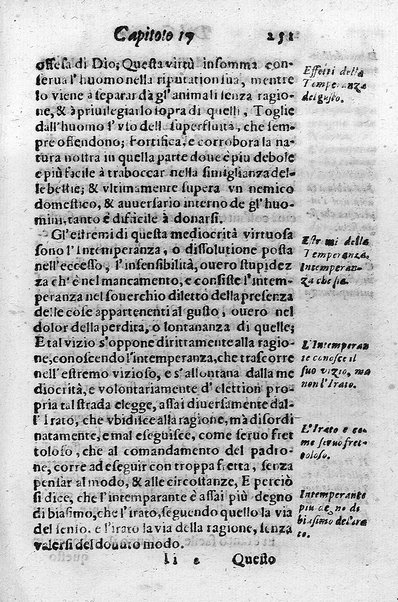 Capitolo 17 251
offesa di Dio; Questa virtù insomma con-
serua l'huomo nella riputation sua, mentre
lo viene à separar da gl'animali senza ragio-
ne, & à priuilegiarlo sopra di quelli, Toglie
dall'huomo l'vso delle superfluità, che sem-
pre offendono; Fortifica, e corrobora la na-
tura nostra in quella parte doue è piu debole
e più facile à traboccar nella similglianza del-
le bestie; & vltimamente supera vn nemico
domestico, & auuersario interno de gl'huo-
mini, tanto è dificile à donarsi.
Gl'estremi di questa mediocrità virtuosa
sono l'Intemperanza, ò dissolutione posta
nell'eccesso, l'insensibilità, ouero stupidez
za ch'è nel mancamento, e consiste l'intem-
peranza nel souerchio diletto della presenza
delle cose appartenenti al gusto, ouero nel
dolor della perdita, ò lontananza di quelle;
E tal vizio s'oppone dirittamente alla ragio-
ne, conoscendo l'intemperanza, che trascorre
nell'estremo vizioso, e s'allontana dalla me
diocrità, e volontariamente d'elettion pro-
pria tal strada elegge, assai diuersamente dal-
l'Irato, che vbidisce alla ragione, ma disordi
natamente, e mal eseguisce, come seruo fret
toloso, che al comandamento del padro-
ne, corre ad eseguir con troppa fretta, senza
pensar al modo, & alle circostanze. E perciò
si dice, che l'intemparante è assai più degno
di biasimo, che l'irato, seguendo quello la via
del senso, e l'irato la via della ragione, senza
valersi del douuto modo.
Ii 2 Questo
Effetti della
Temperanza
del gusto.
Estremi della
Temperanza,
Intemperan-
za che sia.
L'Intemperan
te conosce il
suo vizio, ma
non l'Irato.
L'Irato e co
me seruo fret
toloso.
Intemperante
più degno di
biasimo del'ira
to.